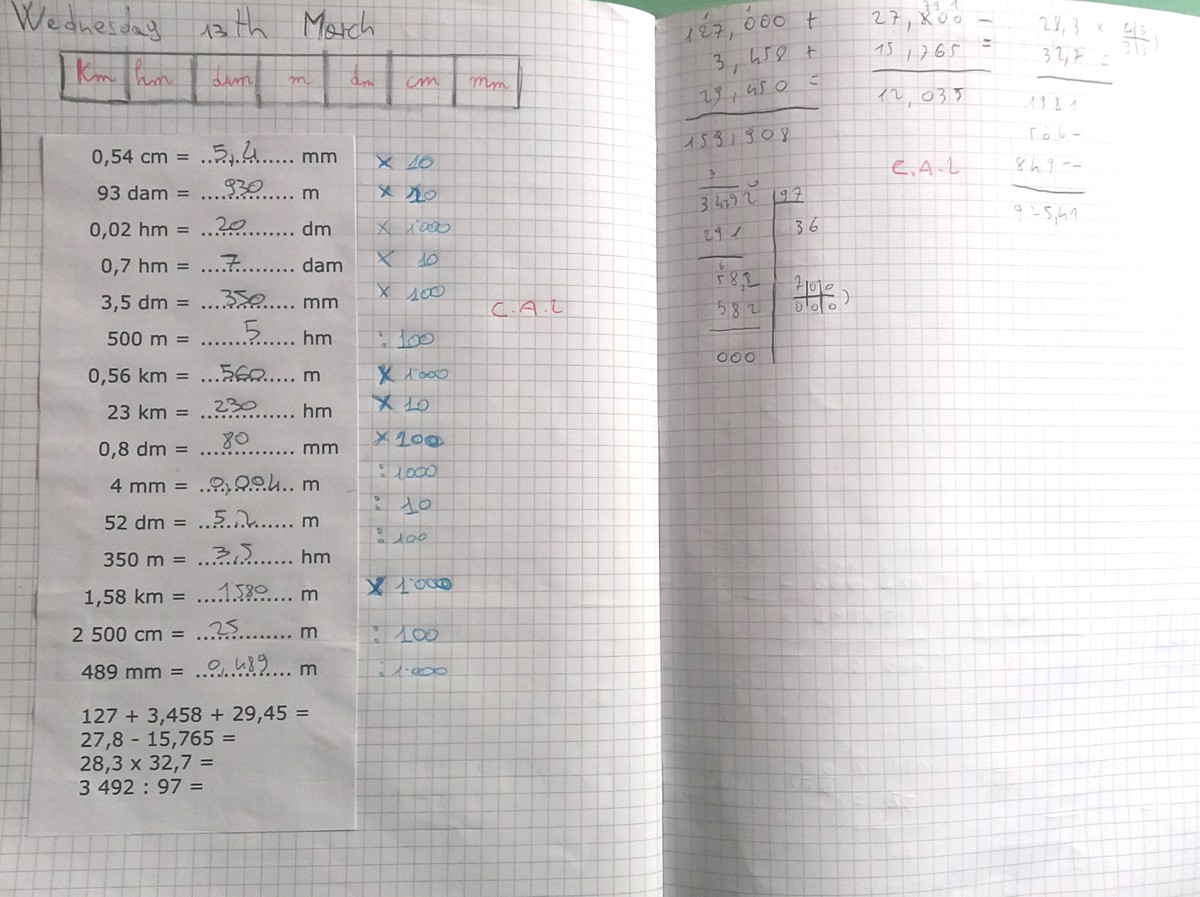 Wednesday 13th March
Km hm dam m dm cm mm
0,54 cm = ...5,4...... mm × 10
93 dam = ....930....... m × 10
0,02 hm = ...20......... dm × 1000
0,7 hm = ....7......... dam × 10
3,5 dm = ....350........ mm × 100
500 m = .......5..... hm : 100
0,56 km = ...560....... m × 1000
23 km = ...230....... hm × 10
0,8 dm = ...80......... mm × 100
4 mm = ..0,004.. m : 1000
52 dm = ...5,2....... m : 10
350 m = ...3,5....... hm : 100
1,58 km = ....1580...... m × 1.000
2 500 cm = ...25......... m : 100
489 mm = ...0,489... m : 1.000
C.A.L
127 + 3,458 + 29,45 =
27,8 - 15,765 =
28,3 x 32,7 =
3 492 : 97 =
127,000 +
3,458 +
29,450 =
159,908
27,800 -
15,765 =
12,035
28,3 ×
32,7 =
1981
566-
849--
925,41
C.A.L
3492 97
291 36
582
582
000